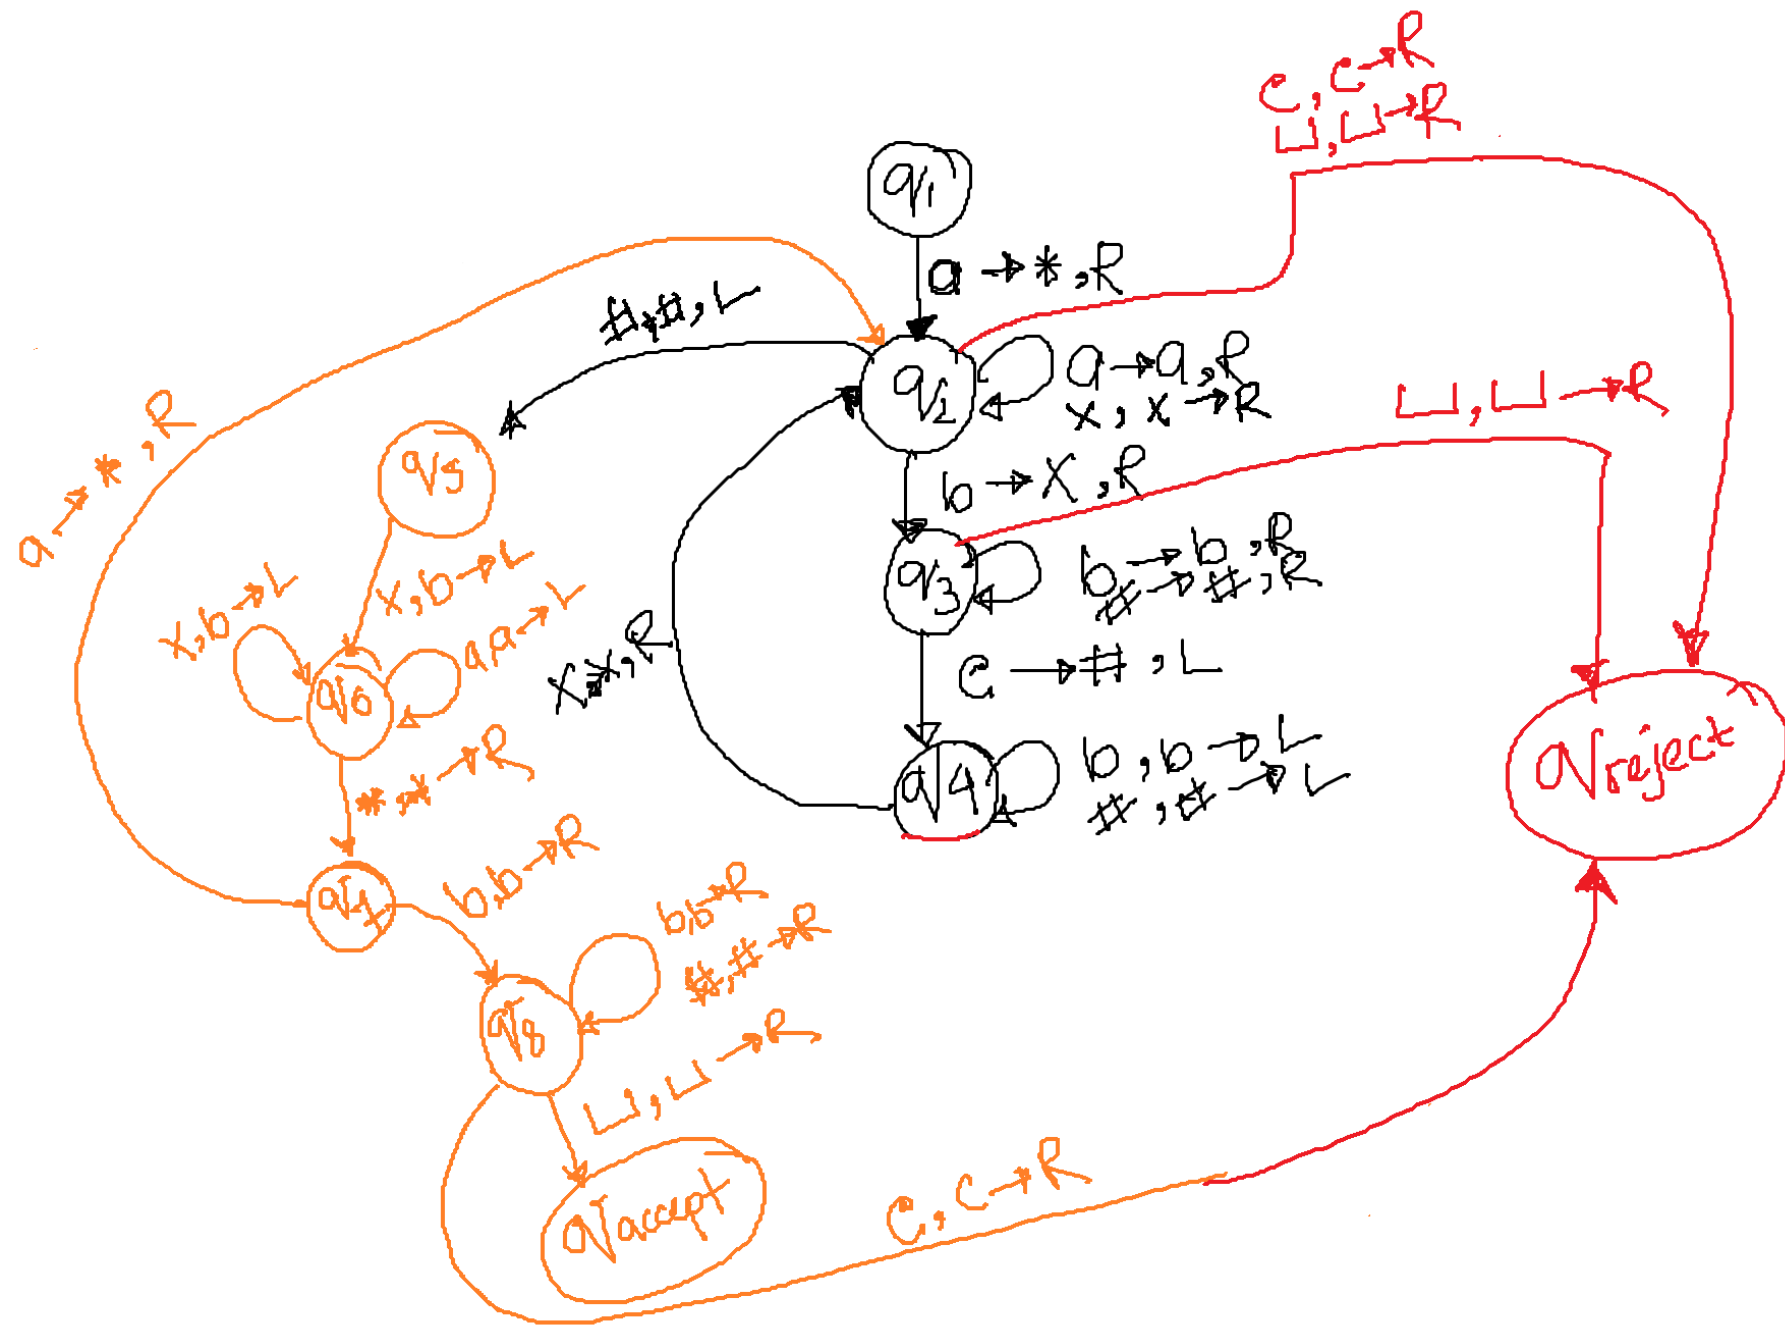 c, c→R
⊔, ⊔→R
q1
a→*,R
#,#,L
q2
a→a,R
x, x→R
⊔, ⊔→R
a→*,R
q5
b→X,R
q3
b→b,R
#→#,R
X,b→L
X,b→L
a,a→L
X→X,R
c→#,L
q6
*,*→R
q4
b,b→L
#,#→L
qreject
b,b→R
b,b→R
#,#→R
q8
⊔,⊔→R
qaccept
c, c→R